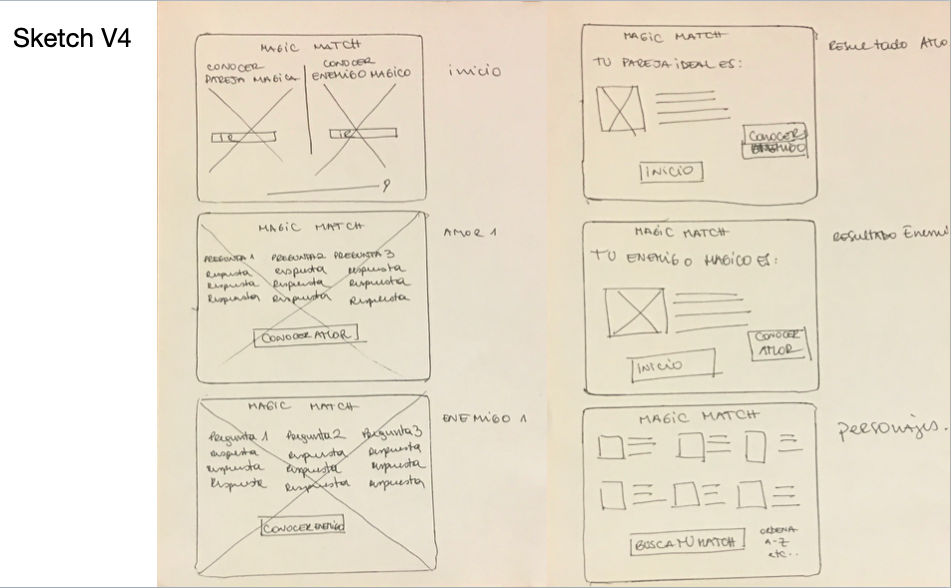 Sketch V4
MAGIC MATCH
CONOCER
PAREJA MAGICA
CONOCER
ENEMIGO MAGICO
IR
IR
inicio
MAGIC MATCH
PREGUNTA 1 PREGUNTA 2 PREGUNTA 3
Respuesta respuesta respuesta
Respuesta Respuesta Respuesta
Respuesta Respuesta Respuesta
CONOCER AMOR
AMOR 1
MAGIC MATCH
Pregunta 1 Pregunta 2 Pregunta 3
Respuesta Respuesta Respuesta
Respuesta Respuesta Respuesta
Respuesta Respuesta Respuesta
CONOCER ENEMIGO
ENEMIGO 1
MAGIC MATCH
TU PAREJA IDEAL ES:
CONOCER
INICIO
Resultado Amo
MAGIC MATCH
TU ENEMIGO MAGICO ES:
CONOCER
AMOR
INICIO
Resultado Enemi
MAGIC MATCH
BUSCA TU MATCH
ORDENA
A-Z
etc..
personajes.